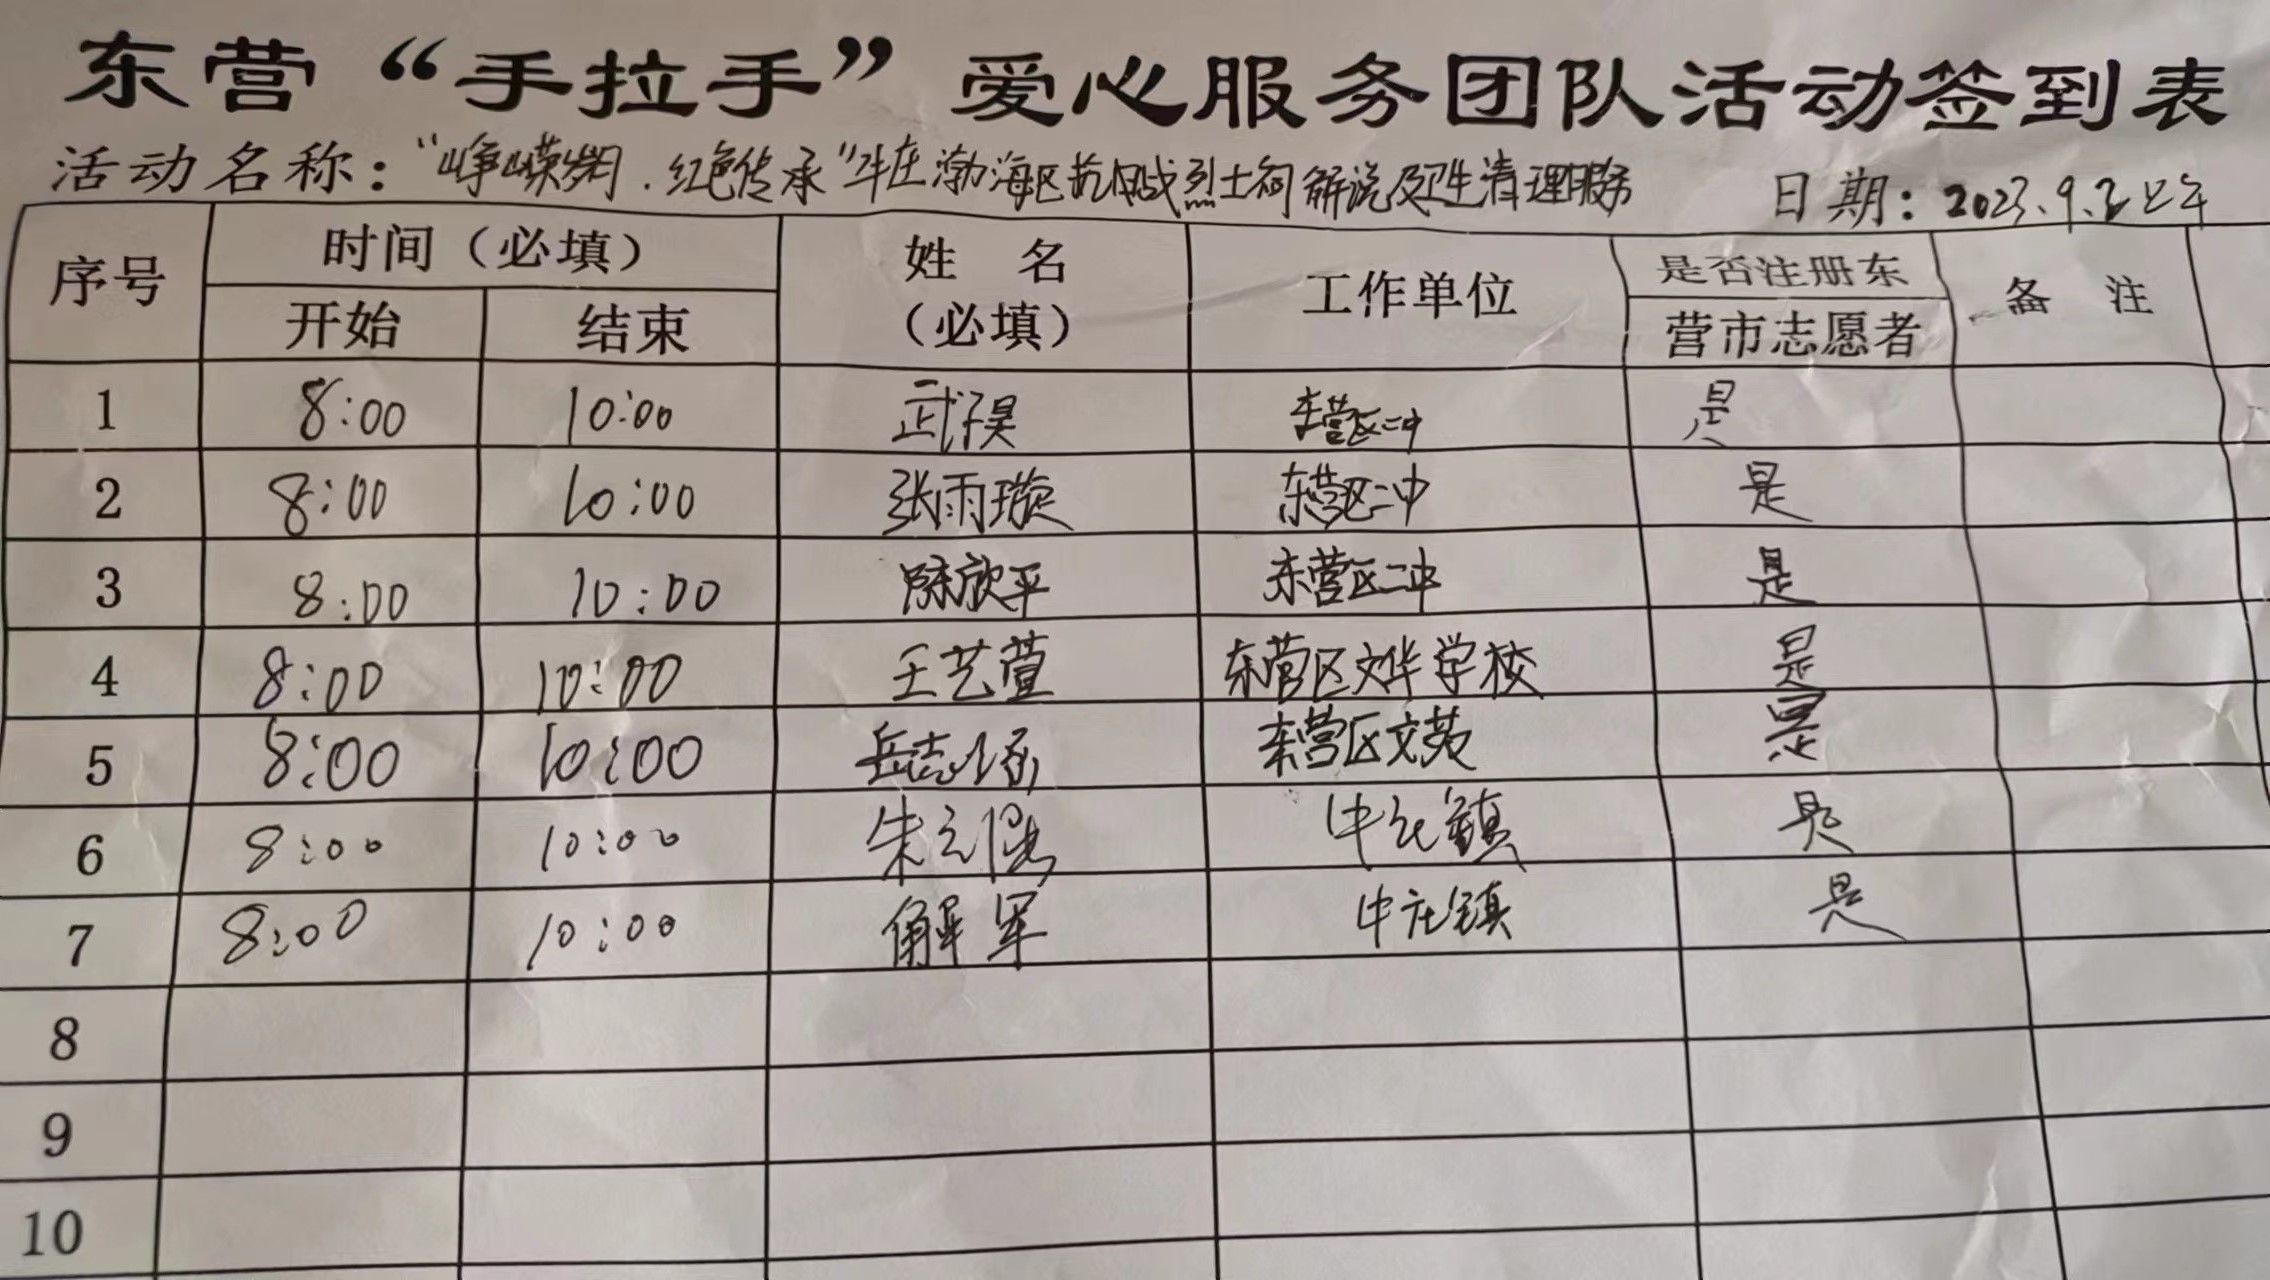 东营“手拉手”爱心服务团队活动签到表
活动名称：“峥嵘岁月．红色传承”牛庄渤海区抗日战烈士祠解说及卫生清理服务 日期：2023.9.3上午
序号 时间（必填） 姓 名（必填） 工作单位 是否注册东营市志愿者 备 注
开始 结束
1 8:00 10:00 武子昊 东营区二中 是
2 8:00 10:00 张雨璇 东营区二中 是
3 8:00 10:00 陈欣平 东营区二中 是
4 8:00 10:00 王艺萱 东营区文华学校 是
5 8:00 10:00 岳志 东营区文苑 是
6 8:00 10:00 朱 牛庄镇 是
7 8:00 10:00 解军 牛庄镇 是
8
9
10